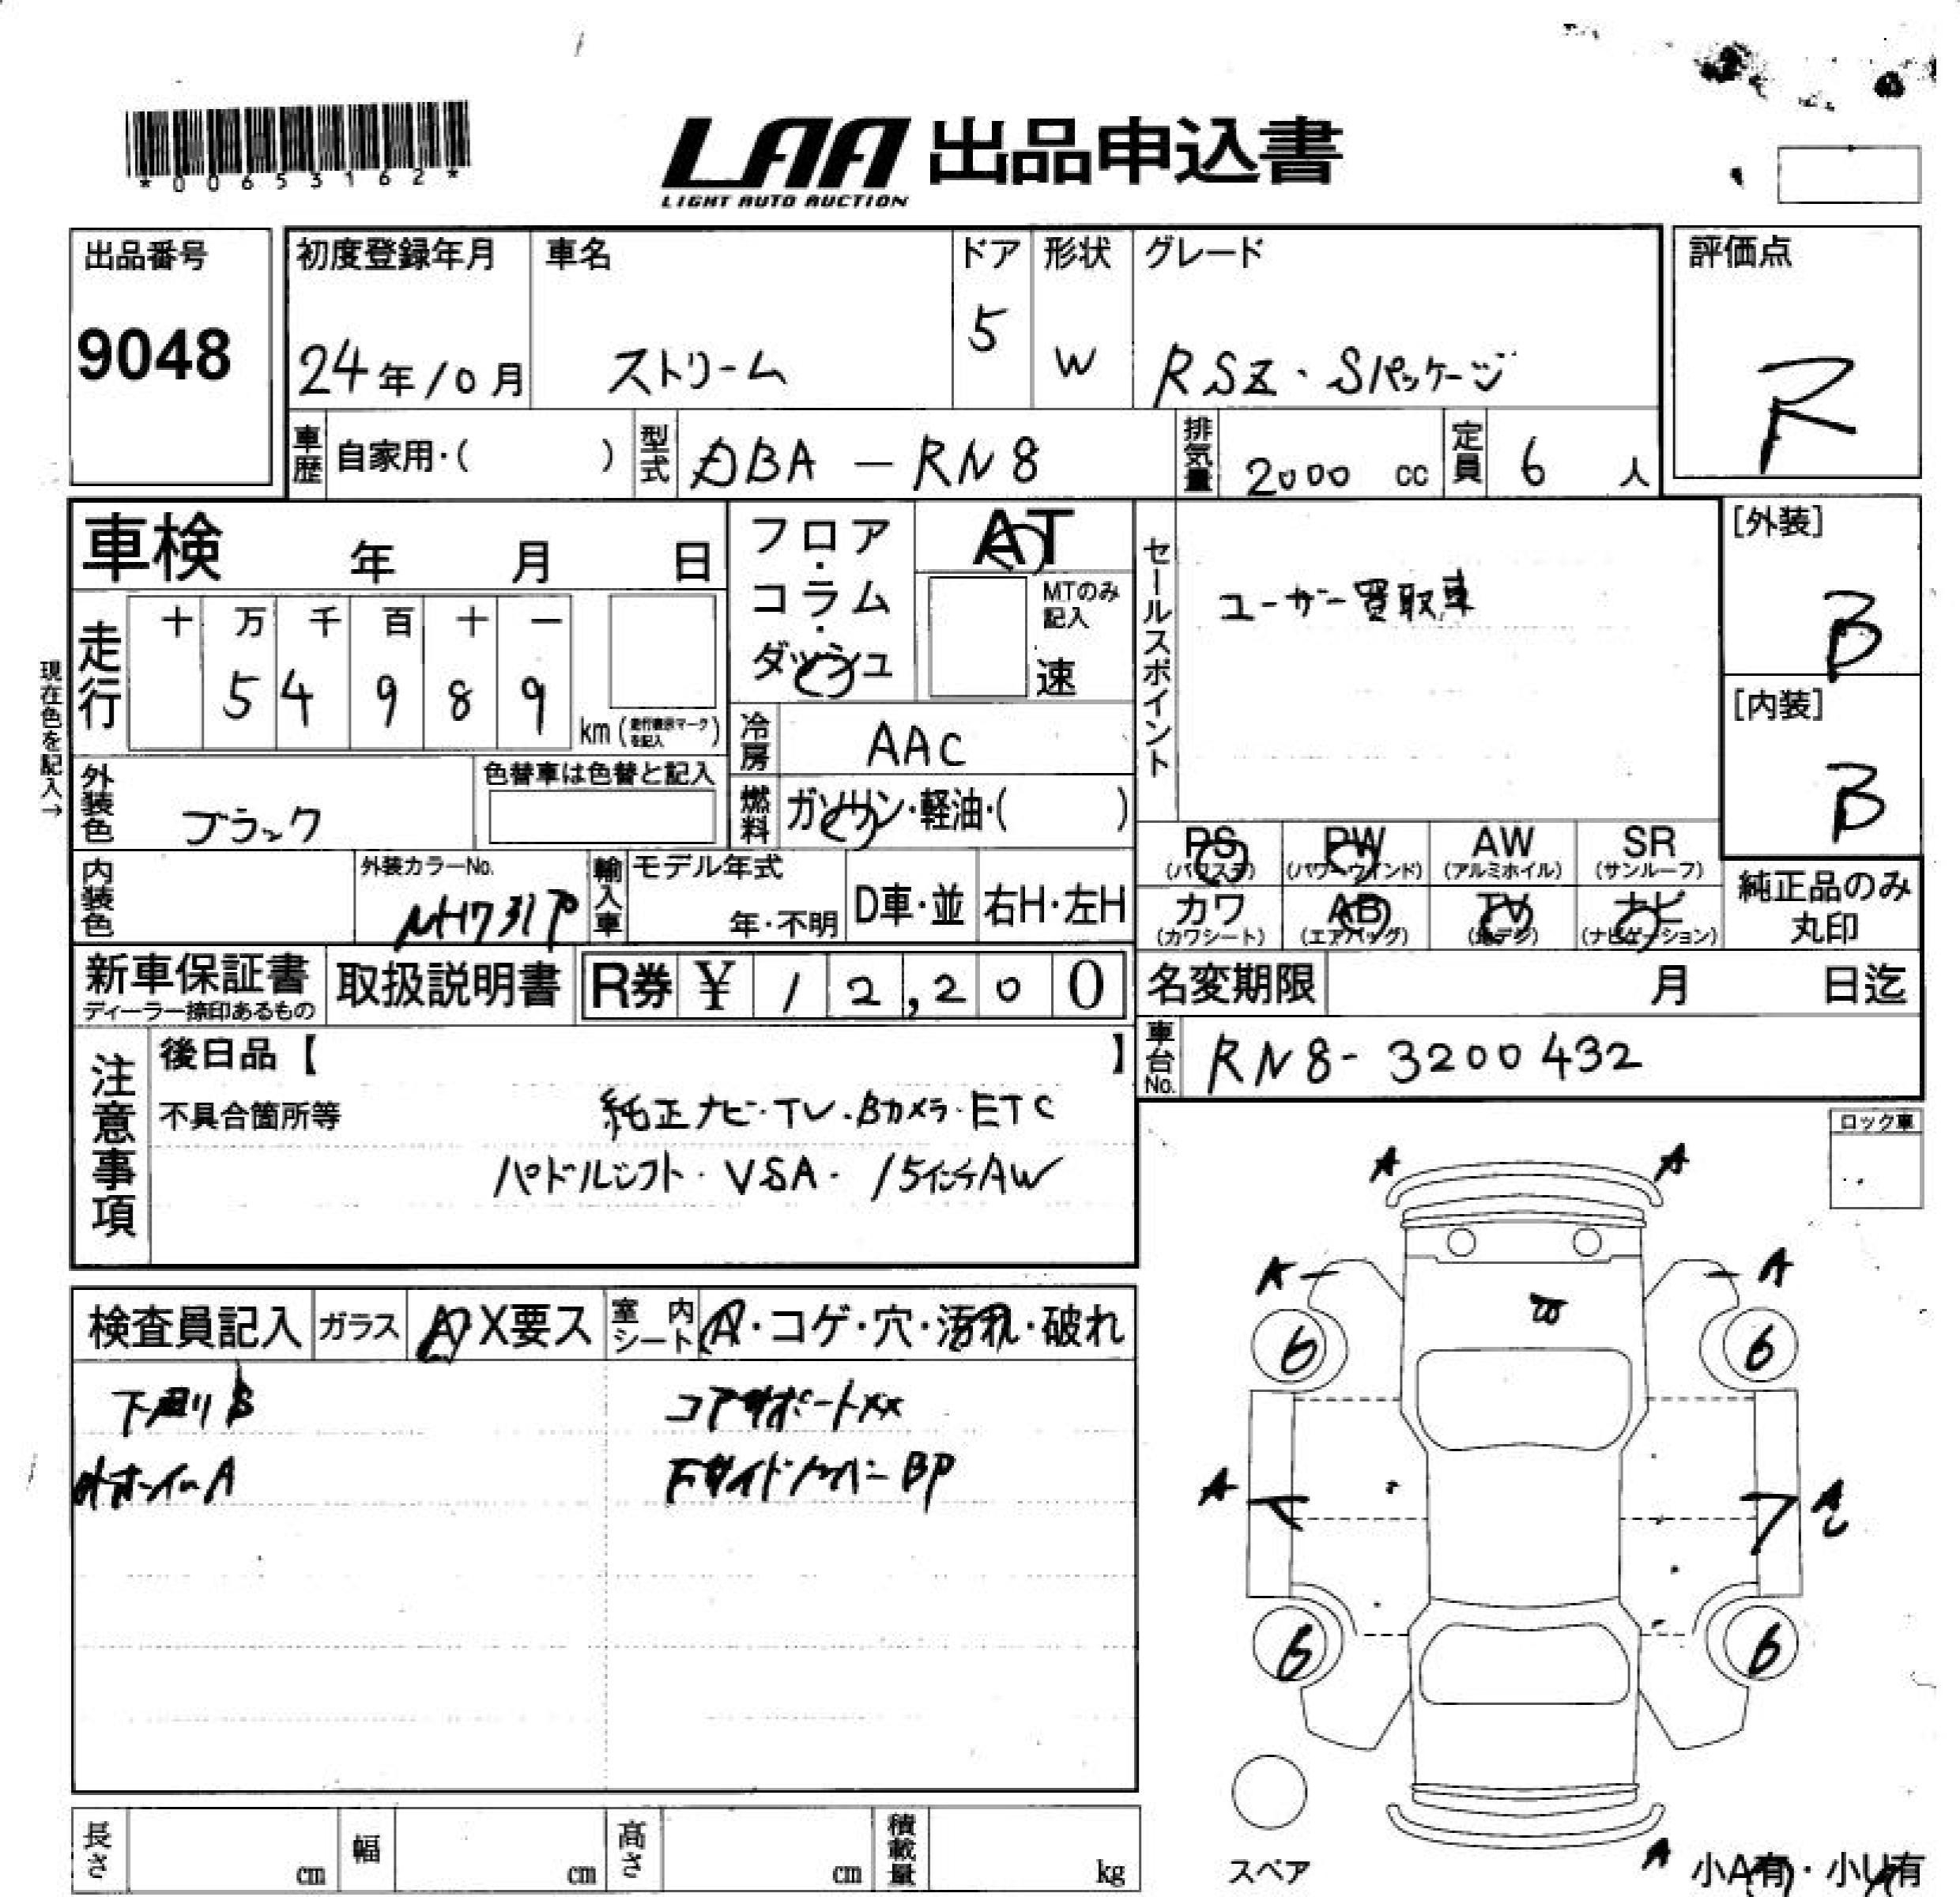 *00653162*
LAA 出品申込書
LIGHT AUTO AUCTION
出品番号
9048
初度登録年月
24年10月
車名
ストリーム
ドア
5
形状
W
グレード
RSZ・Sパッケージ
評価点
R
車歴 自家用・( )
型式 DBA-RN8
排気量 2000 cc
定員 6 人
車検 年 月 日
フロア・コラム・ダッシュ
AT
MTのみ記入
速
セールスポイント
ユーザー買取車
[外装]
B
[内装]
B
現在色を記入→
走行
十 万 千 百 十 一
5 4 9 8 9
km (走行表示マークを記入)
冷房 AAC
燃料 ガソリン・軽油・( )
外装色 ブラック
色替車は色替と記入
内装色
外装カラーNo.
NH731P
輸入車
モデル年式
年・不明
D車・並
右H・左H
PS (パワステ)
PW (パワーウインド)
AW (アルミホイル)
SR (サンルーフ)
カワ (カワシート)
AB (エアバッグ)
TV (地デジ)
ナビ (ナビゲーション)
純正品のみ
丸印
新車保証書
ディーラー捺印あるもの
取扱説明書
R券 ¥ 12,200
名変期限 月 日迄
車台No. RN8-3200432
注意事項
後日品【 】
不具合箇所等
純正ナビ・TV・Bカメラ・ETC
パドルシフト・VSA・15インチAW
ロック車
検査員記入
ガラス A・X要ス
室内シート A・コゲ・穴・汚れ・破れ
下廻りB
コアサポートXX
A
BP
A
A
A
A
6
6
A
A
6
6
A
スペア
小A有・小U有
長さ cm
幅 cm
高さ cm
積載量 kg